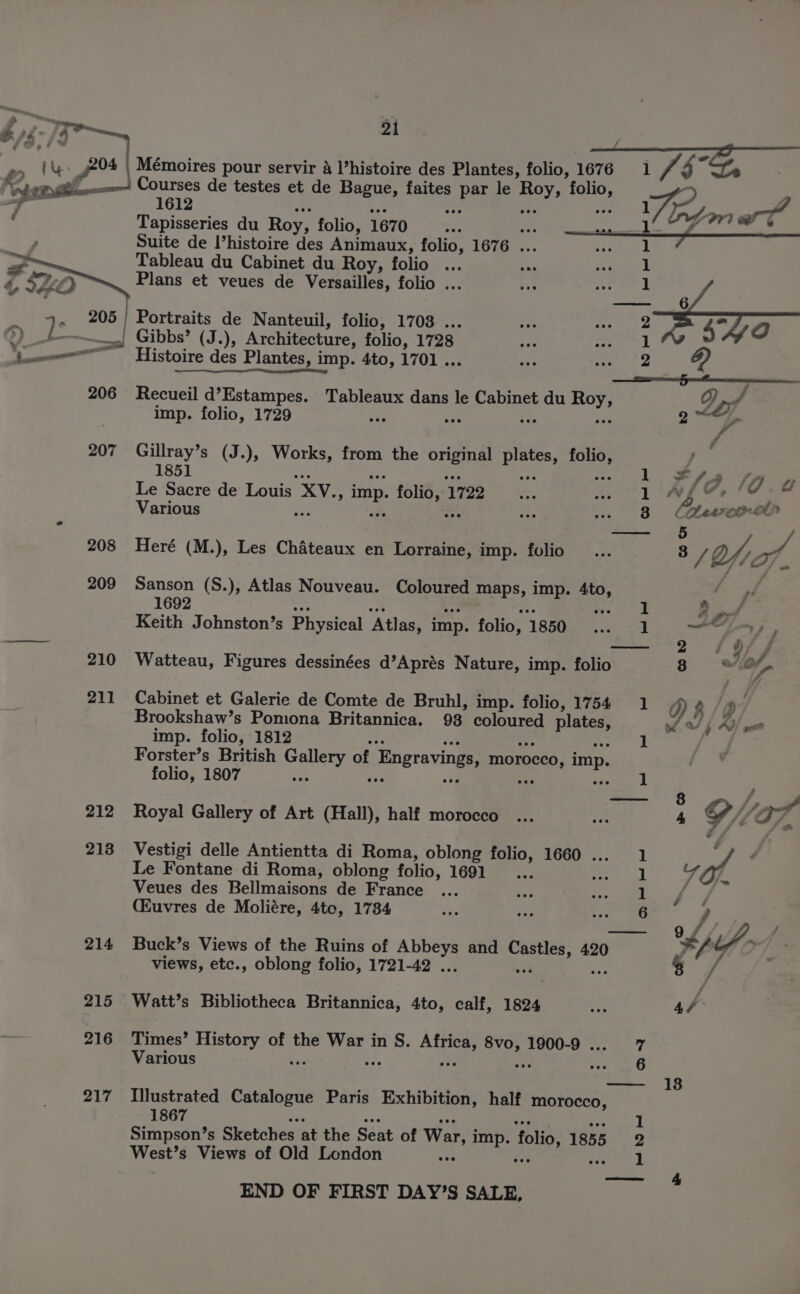 21
204 Mémoires pour servir à l’histoire des Plantes, folio, 1676 1
Courses de testes et de Bague, faites par le Roy, folio,
1612 ... ... ... ... ... 1
Tapisseries du Roy, folio, 1670 ... ... ... 1
Suite de l’histoire des Animaux, folio, 1676 ... ... 1
Tableau du Cabinet du Roy, folio ... ... ... 1
Plans et veues de Versailles, folio ... ... ... 1
— 6
205 Portraits de Nanteuil, folio, 1703 ... ... ... 2
Gibbs’ (J.), Architecture, folio, 1728 ... ... 1
Histoire des Plantes, imp. 4to, 1701 ... ... ... 2
— 5
206 Recueil d’Estampes. Tableaux dans le Cabinet du Roy,
imp. folio, 1729 ... ... ... ... 2
207 Gillray’s (J.), Works, from the original plates, folio,
1851 ... ... ... ... ... 1
Le Sacre de Louis XV., imp. folio, 1722 ... ... 1
Various ... ... ... ... ... 3
— 5
208 Heré (M.), Les Châteaux en Lorraine, imp. folio ... 3
209 Sanson (S.), Atlas Nouveau. Coloured maps, imp. 4to,
1692 ... ... ... ... 1
Keith Johnston’s Physical Atlas, imp. folio, 1850 ... 1
— 2
210 Watteau, Figures dessinées d’Aprés Nature, imp. folio 3
211 Cabinet et Galerie de Comte de Bruhl, imp. folio, 1754 1
Brookshaw’s Pomona Britannica. 93 coloured plates,
imp. folio, 1812 ... ... ... ... 1
Forster’s British Gallery of Engravings, morocco, imp.
folio, 1807 ... ... ... ... ... 1
— 3
212 Royal Gallery of Art (Hall), half morocco ... ... 4
213 Vestigi delle Antientta di Roma, oblong folio, 1660 ... 1
Le Fontane di Roma, oblong folio, 1691 ... ... 1
Veues des Bellmaisons de France ... ... ... 1
Œuvres de Moliére, 4to, 1734 ... ... ... 6
— 9
214 Buck’s Views of the Ruins of Abbeys and Castles, 420
views, etc., oblong folio, 1721-42 ... ... ... 3
215 Watt’s Bibliotheca Britannica, 4to, calf, 1824 ... 4
216 Times’ History of the War in S. Africa, 8vo, 1900-9 ... 7
Various ... ... ... ... ... 6
— 13
217 Illustrated Catalogue Paris Exhibition, half morocco,
1867 ... ... ... ... 1
Simpson’s Sketches at the Seat of War, imp. folio, 1855 2
West’s Views of Old London ... ... ... 1
— 4
END OF FIRST DAY’S SALE.